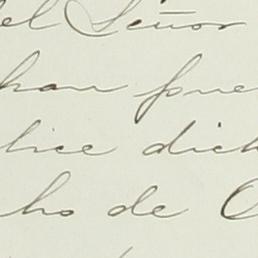 el Señor
han
hice dich
ho de